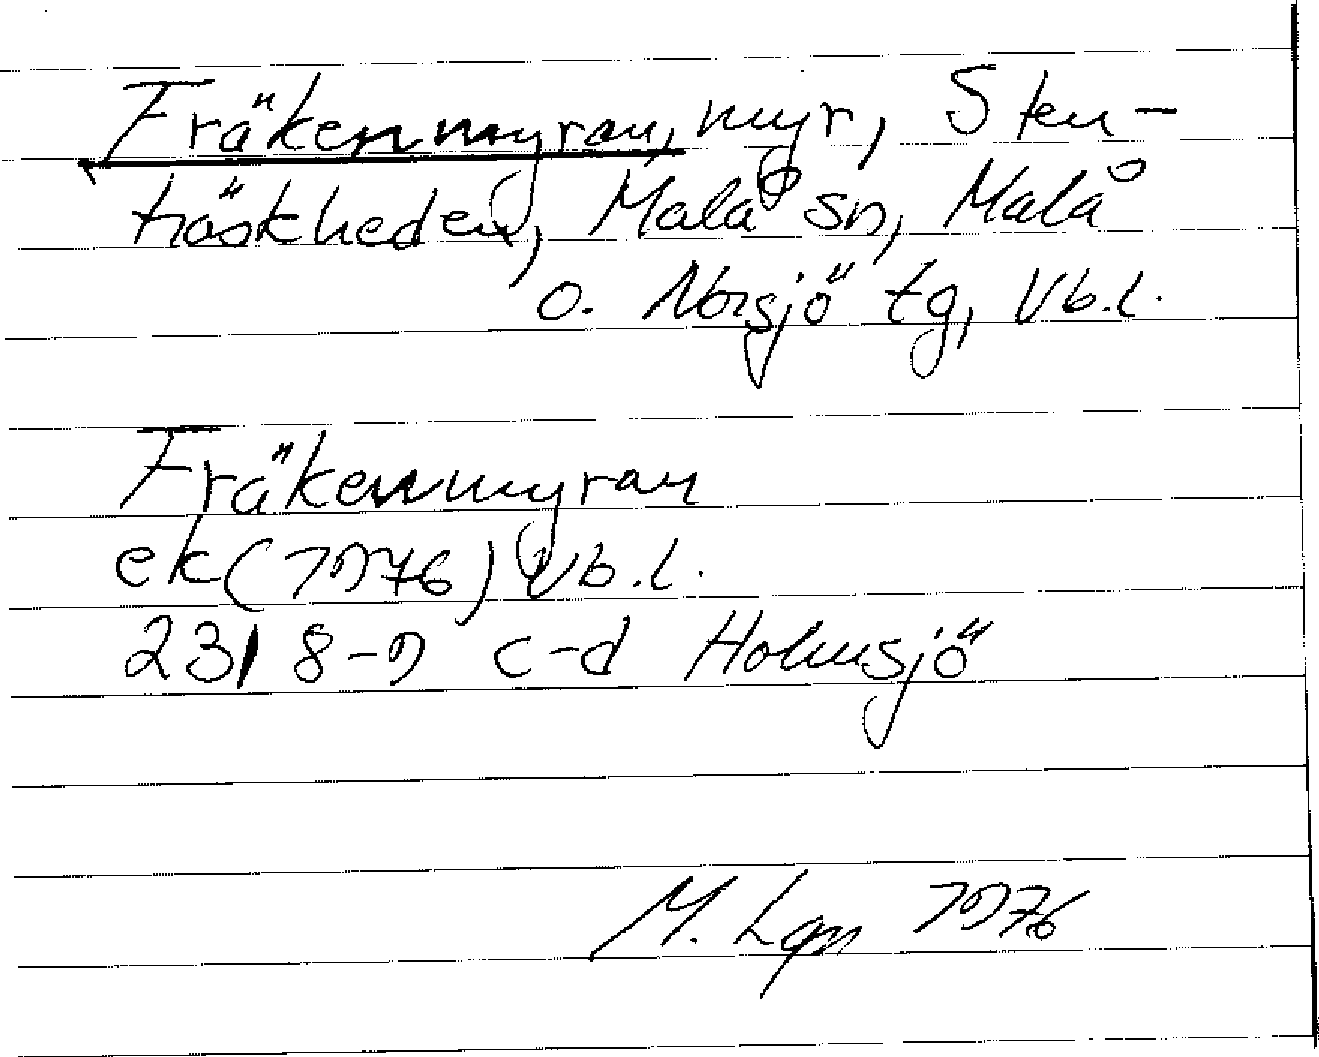 Fräkenmyran, myr, Sten-
träskheden, Malå sn, Malå
o. Norsjö tg, Vb.l.
Fräkenmyran
ek (1976) Vb.l.
231 8-9 c-d Holmsjö
M. Lqn 1976